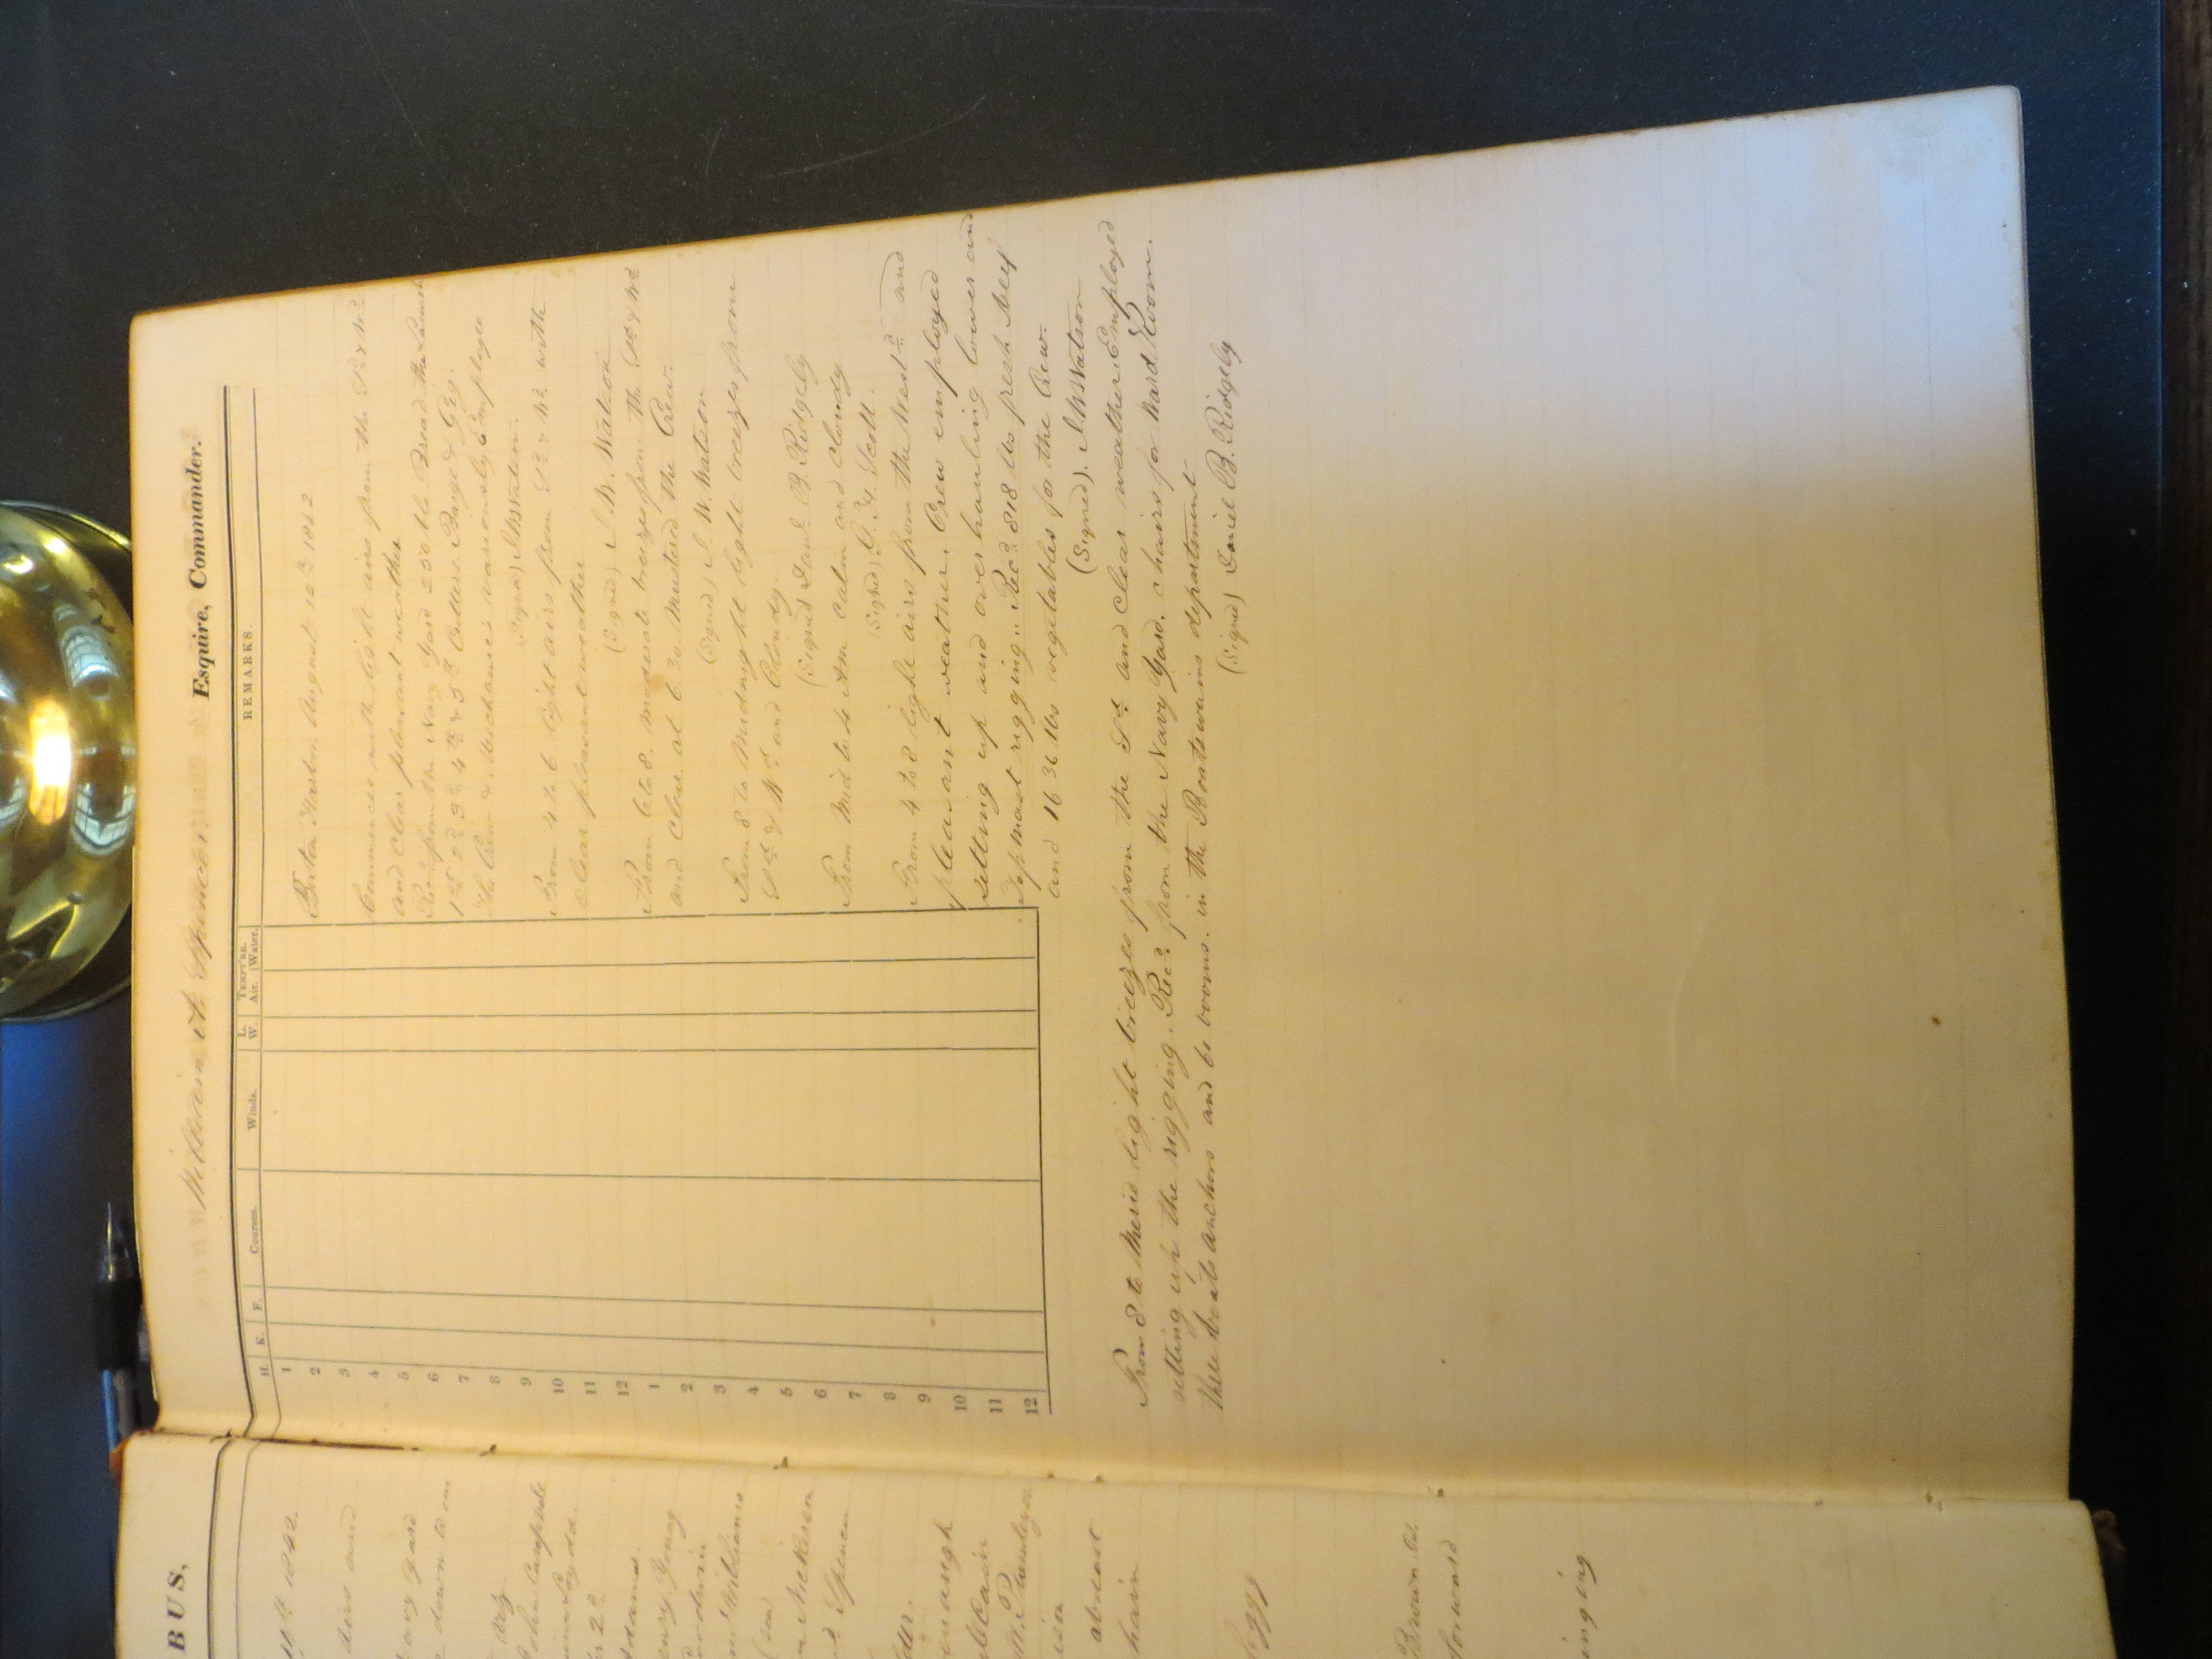 BUS,
11th 1842.
airs and
Navy Yard
down to our
viz
John Campbell
Lloyd
2d
Adams
Henry Young
Goodwin
Williams
Nickerson
Spencer
absent
Brown
forward
William A. Spencer Esquire, Commander.
H. K. F. Courses. Winds. L. W. TEMPT'RE. Air. Water. REMARKS.
1
2
3
4
5
6
7
8
9
10
11
12
1
2
3
4
5
6
7
8
9
10
11
12
Boston Harbor August 12th 1842
Commences with light airs from the Sd & Wd
and clear pleasant weather
Recd from the Navy Yard 250 lbs Bread the Launch
1st 2d 3d 4th & 5th Cutters Barge & Gig.
The Crew & Mechanics variously employed
(Signed) J W Watson.
From 4 to 6 light airs from Sd & Wd with
clear pleasant weather
(Signed) J. W. Watson
From 6 to 8. Moderate breezes from the Sd & Wd
and clear. at 6.30 Mustered the Crew.
(Signed) J. W. Watson
From 8 to Midnight light breezes from
Sd & Wd and Cloudy.
(Signed Danl. B. Ridgely
From Mid to 4 Am Calm and Cloudy
(Signed) G. H. Scott.
From 4 to 8 light airs from the West d and
pleasant weather. Crew employed
setting up and overhauling lower and
Topmast rigging. Recd 818 lbs fresh Beef
and 1636 lbs vegetables for the Crew.
(Signed). J W Watson
From 8 to Merid light breezes from the Sd and clear weather. Employed
setting up the rigging. Recd from the Navy Yard. chairs for Ward Room.
three boats anchors and 6 booms. in the Boatswains department
(Signed) Daniel B. Ridgely